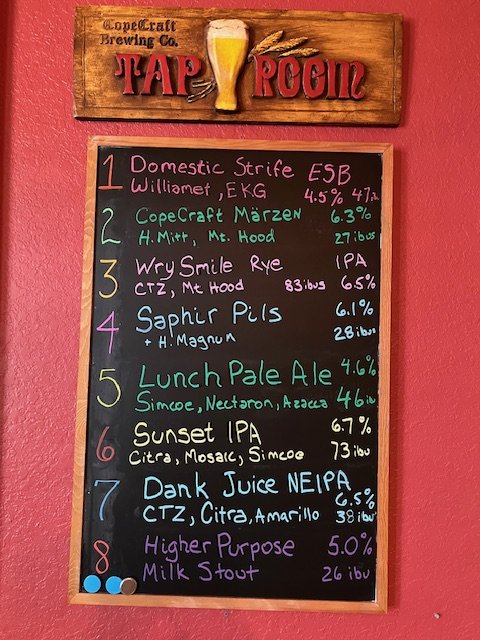 CopeCraft
Brewing Co.
TAP ROOM
1 Domestic Strife ESB
Williamet, EKG 4.5% 47
2 CopeCraft Märzen 6.3%
H. Mitt, Mt. Hood 27 ibus
3 Wry Smile Rye IPA
CTZ, Mt Hood 83 ibus 6.5%
4 Saphir Pils 6.1%
+ H. Magnum 28 ibus
5 Lunch Pale Ale 4.6%
Simcoe, Nectaron, Azacca 46 ibu
6 Sunset IPA 6.7%
Citra, Mosaic, Simcoe 73 ibu
7 Dank Juice NEIPA
6.5%
CTZ, Citra, Amarillo 38 ibu
8 Higher Purpose 5.0%
Milk Stout 26 ibu